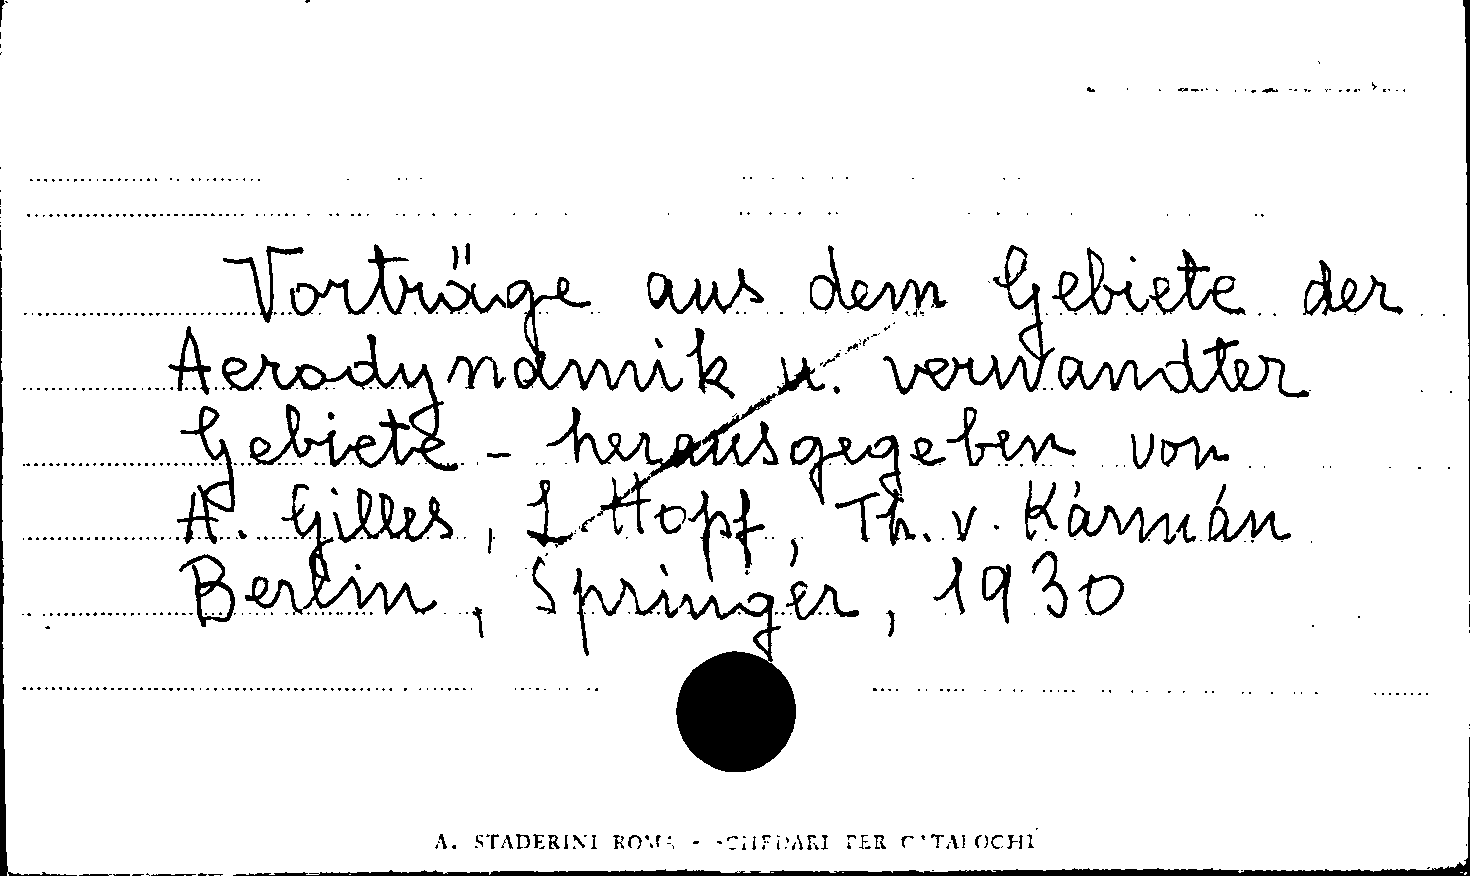 Vorträge aus dem Gebiete der
Aerodynamik u. verwandter
Gebiete - herausgegeben von
A. Gilles, L Hopf, Th. v. Kármán
Berlin, Springer, 1930
A. STADERINI ROMA - SCHEDARI PER CATALOGHI